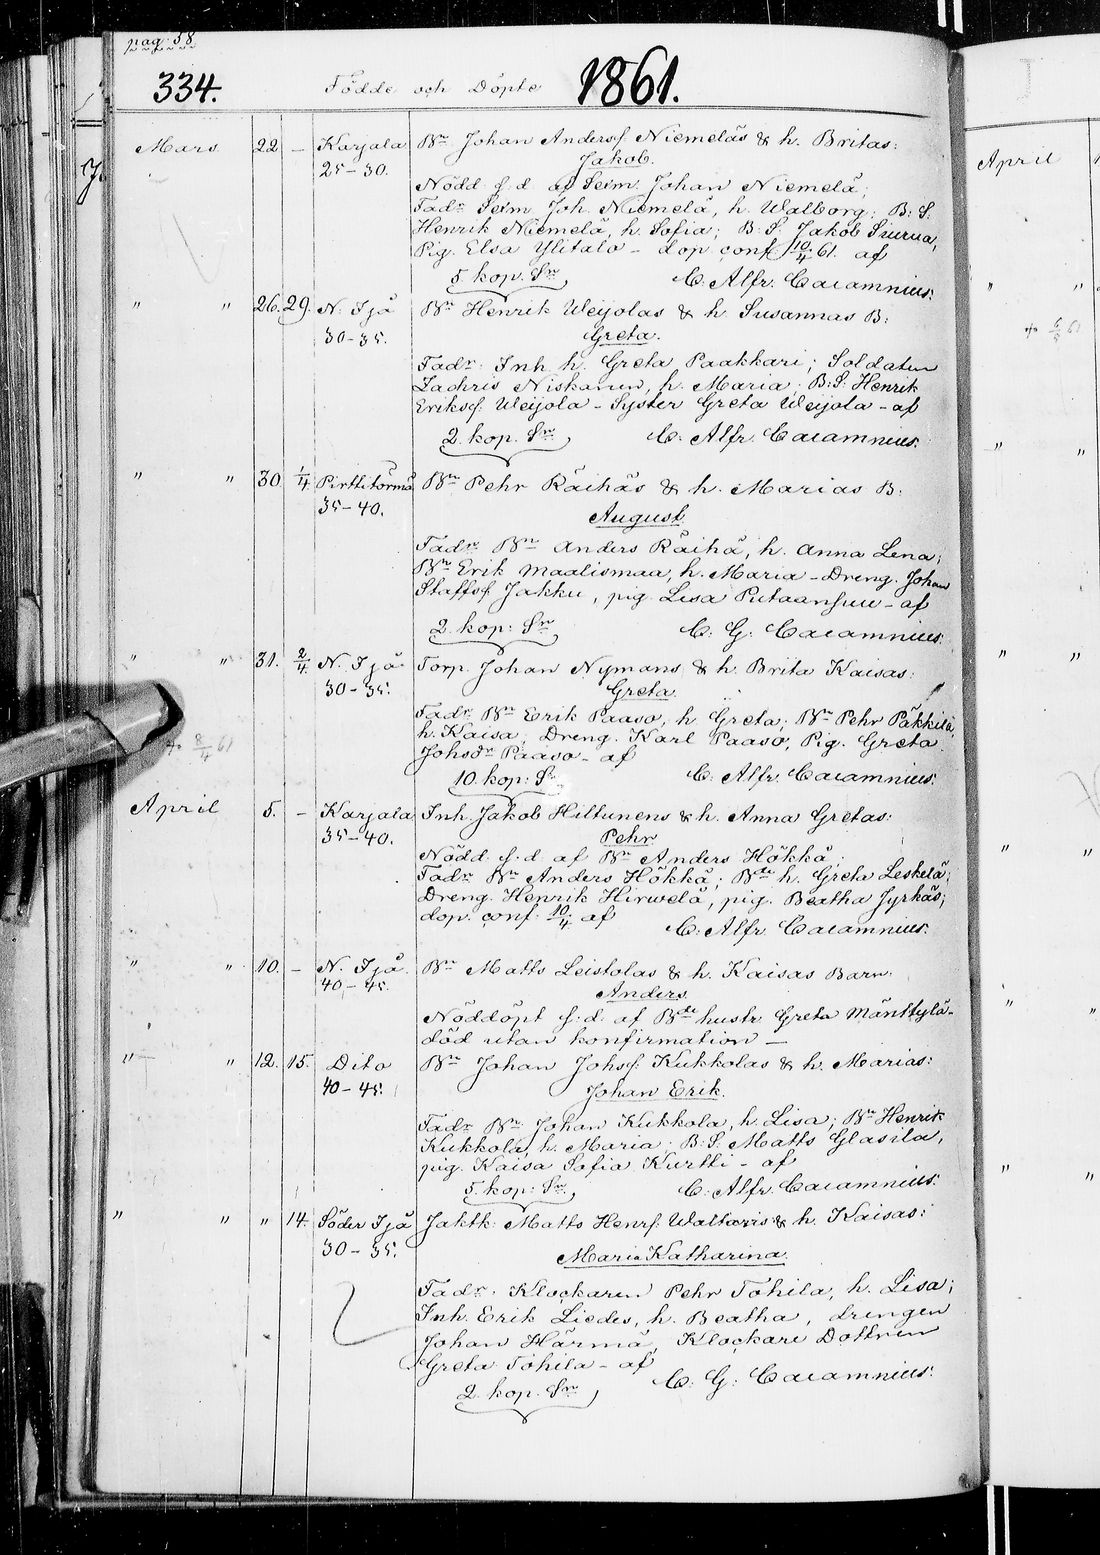 pag. 58
334. Födde och Döpte 1861.
Mars 22 – Karjala Bn Johan Andersſ. Niemeläs & h. Britas:
25–30. Jakob.
Nödd. ſ. d. af Seim. Johan Niemelä;
Fadr Seim Joh. Niemelä, h. Walborg; B: S:
Henrik Niemelä, h. Sofia; B: S: Jakob Suurua,
Pig. Elsa Ylitalo – dop. conf. 10/4 61. af
5 kop. Sr C. Alfr. Cacamnius.
" " 26. 29. N. Ijå Bn Henrik Weijolas & h. Susannas B:
30–35. Greta.
Fadr: Inh. h. Greta Paakkari; Soldaten
Zachris Niskanen, h. Maria; B: S: Henrik
Eriksſ. Weijola – Syster Greta Weijola – af
2. kop. Sr C. Alfr. Cacamnius.
" " 30. 1/4 Pirttitörmä Bn Pehr Räihäs & h. Marias B:
35–40. August.
Fadr Bn Anders Räihä, h. Anna Lena;
Bn Erik Maalismaa, h. Maria – Dreng. Johan
Staffsſ. Jakku, pig. Lisa Putaansuu – af
2. kop: Sr C. G. Cacamnius.
" " 31. 2/4. N. Ijå Torp. Johan Nymans & h. Brita Kaisas:
30–35. Greta.
Fadr Bn Erik Paaso, h. Greta; Bn Pehr Päkkilä,
h. Kaisa; Dreng. Karl Paaso, Pig. Greta
8/4 61 Johsdr Paaso – af
10. kop: Sr C. Alfr. Cacamnius.
April 5. – Karjala Inh. Jakob Hiltunens & h. Anna Gretas:
35–40. Pehr
Nödd. ſ. d. af Bn Anders Hökkä;
Fadr Bn Anders Hökkä; Bde h. Greta Leskelä;
Dreng. Henrik Hirwelä, pig. Beatha Jyrkäs;
dop. conf. 10/4 af C. Alfr. Cacamnius.
" " 10. – N. Ijå Bn Matts Leistolas & h. Kaisas Barn:
40–45. Anders.
Nöddöpt ſ. d. af Bde hustr Greta Mänttylä –
död utan konfirmation –
" " 12. 15. Dito Bn Johan Johsſ. Kukkolas & h. Marias:
40–45. Johan Erik.
Fadr Bn Johan Kukkola, h. Lisa; Bn Henrik
Kukkola, h. Maria; B: S: Matts Glasila,
pig. Kaisa Sofia Kurtti – af
5. kop: Sr. C. Alfr. Cacamnius.
" " " 14. Söder Ijå Jaktk. Matts Henrſ. Waltaris & h. Kaisas:
30–35. Maria Katharina.
Fadr. Klockaren Pehr Tohila, h. Lisa;
Inh. Erik Liedes, h. Beatha, drengen
Johan Härmä, Klockare Dottren
Greta Tohila – af
2. kop. Sr C. G. Cacamnius.
April